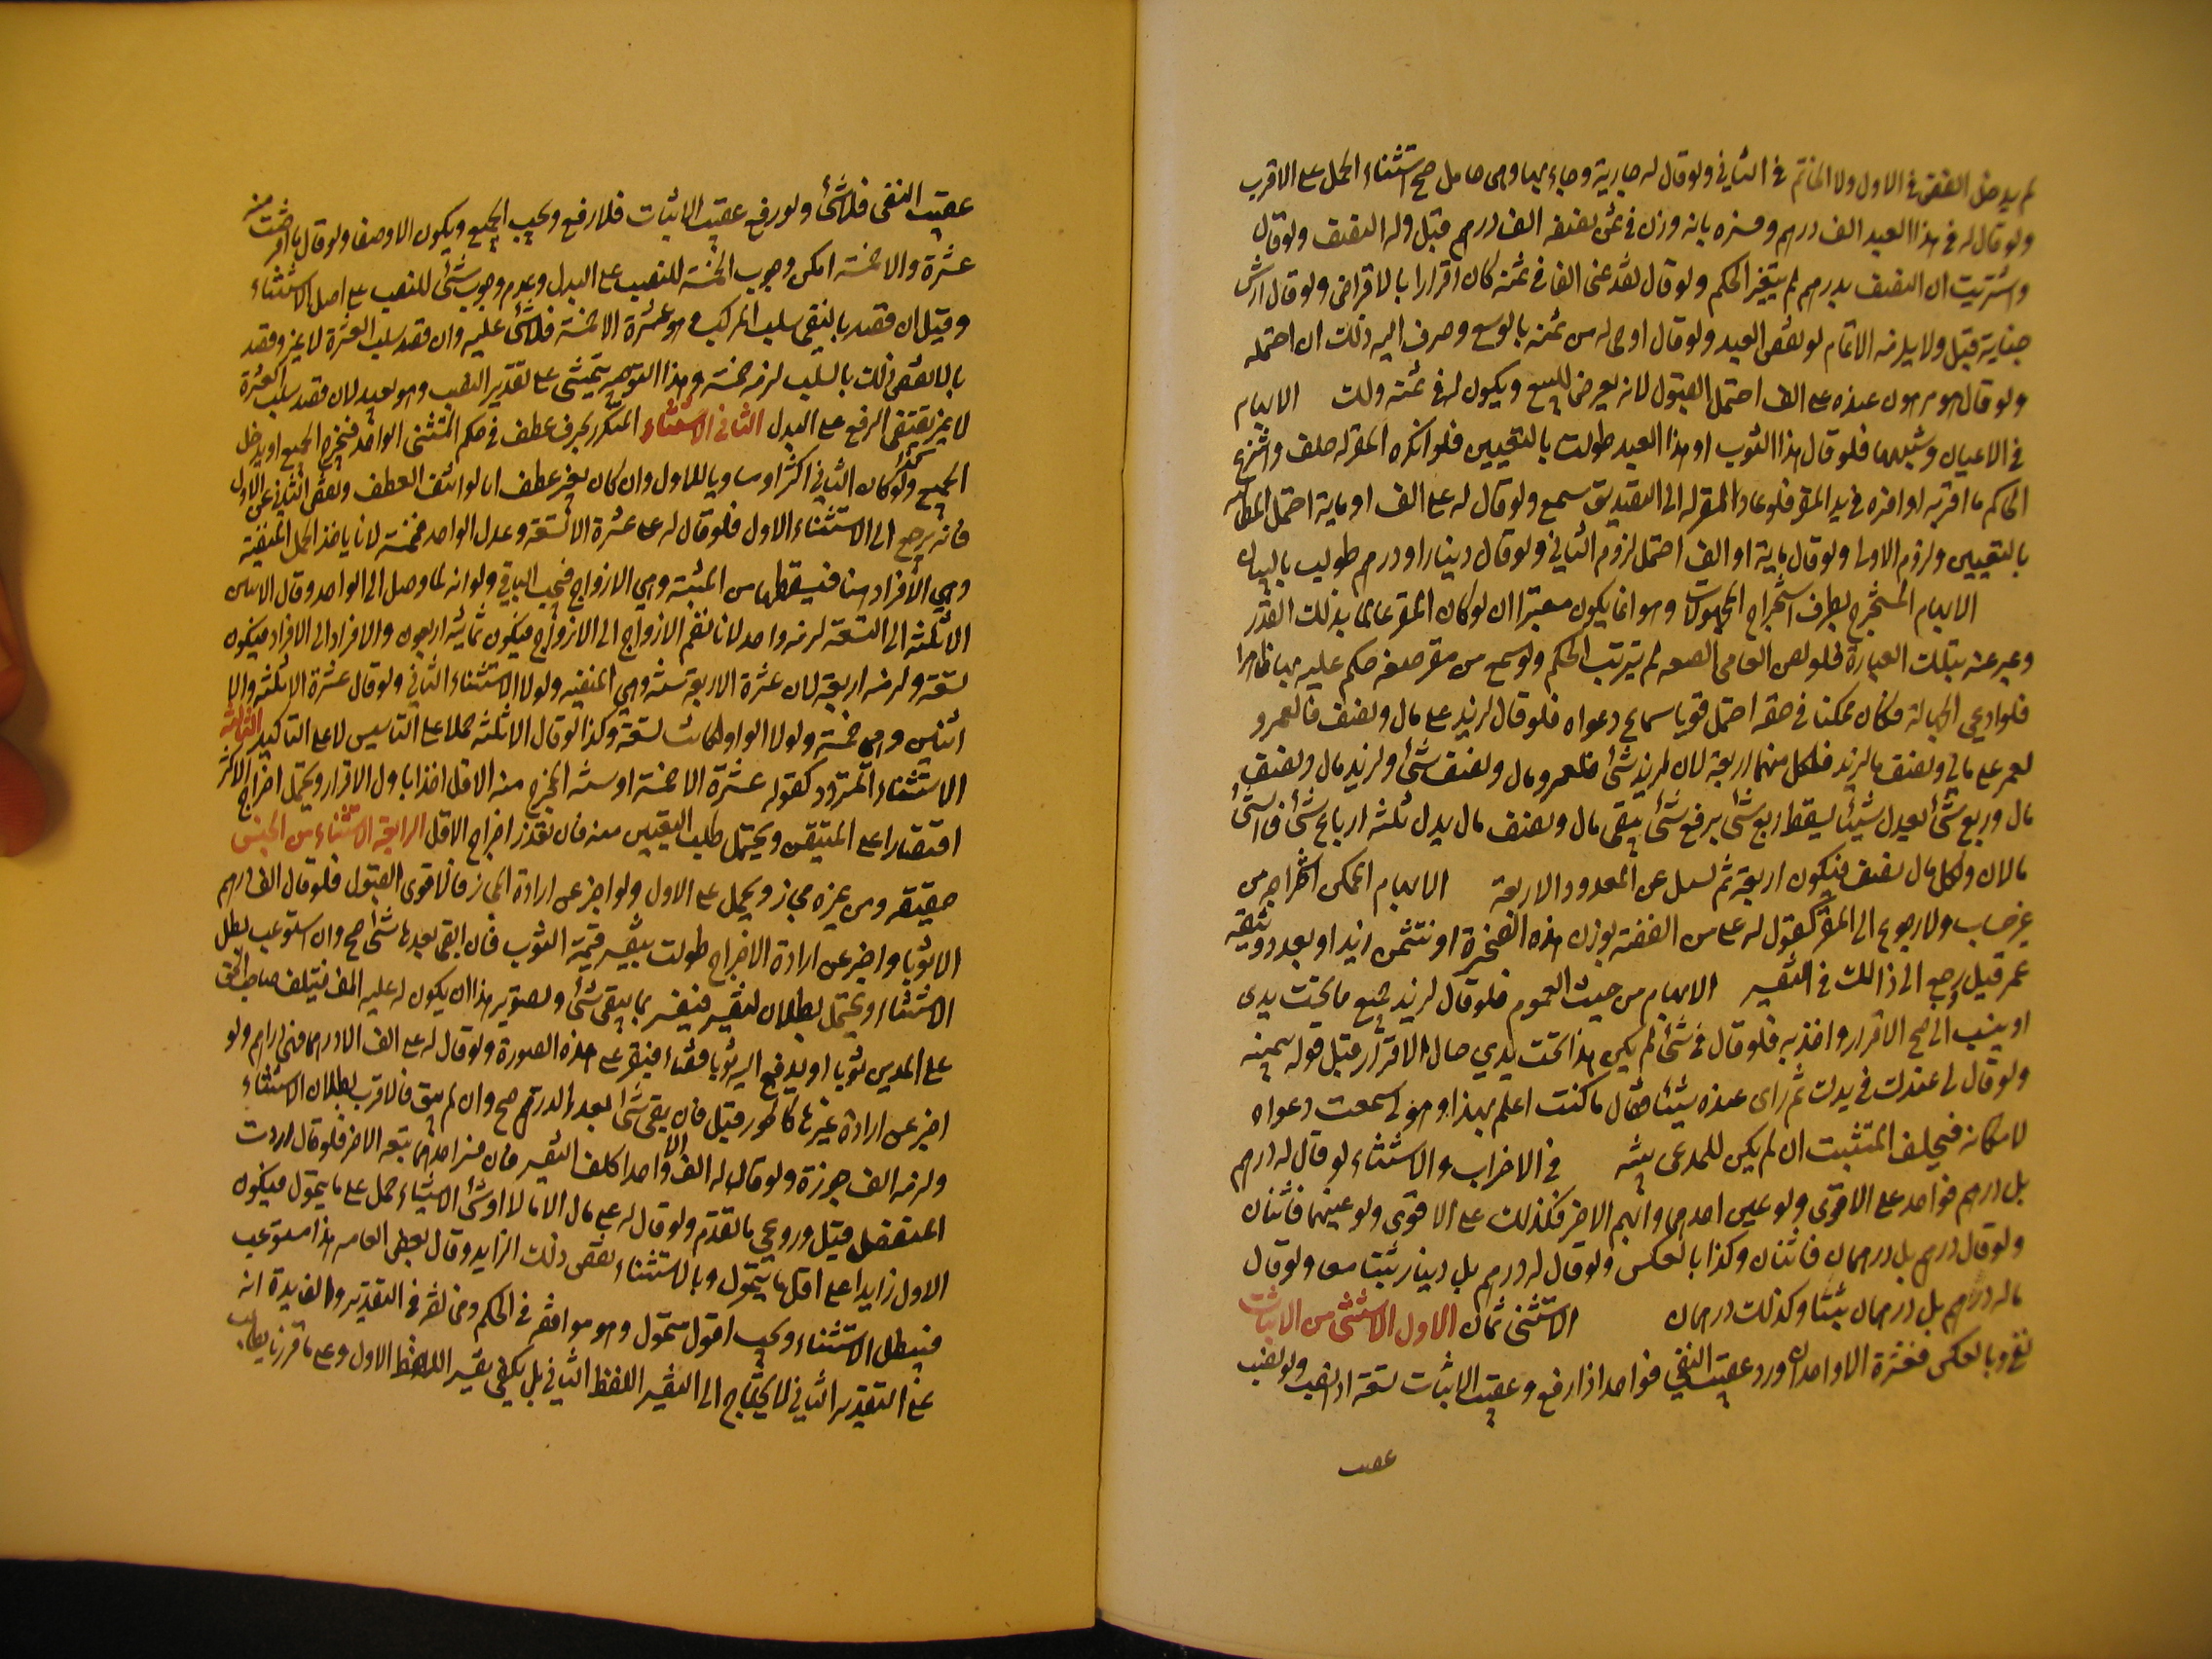 لم يدخل الفص في الاول ولا الخاتم في الثاني ولو قال له جارية وجاء بها وهي حامل صح استثناء الحمل على الاقرب
ولو قال له في هذا العبد الف درهم وفسره بانه وزن في ثمن نصفه الف درهم قبل وله النصف ولو قال
واشتريت ان النصف بدرهم لم يتغير الحكم ولو قال نقد عني الفا في ثمنه كان اقرارا بالاقراض ولو قال ارش
جناية قبل ولا يلزمه الاتمام لو نقص العبد ولو قال اوصى له من ثمنه بالوسع وصرف اليه ذلك ان احتمله
ولو قال هو مرهون عنده على الف احتمل القبول لانه يعرض للبيع ويكون له في ثمنه ولت الابهام
في الاعيان وشبهها فلو قال هذا الثوب او هذا العبد طولت بالتعيين فلو انكره المقر له حلف وانتزع
الحاكم ما اقر به او اقره في يد المقر فلو عاد المقر له الى التصديق سمع ولو قال له على الف او ماية احتمل المطالبه
بالتعيين ولزوم الاول ولو قال ماية او الف احتمل لزوم الثاني ولو قال دينار او درهم طولب بالبيان
الابهام المستخرج بطرف استخراج المجهولات وهو انما يكون معتبرا ان لو كان المقر عالما بذلك القدر
وعبر عنه بتلك العبارة فلو لقن العامي الصيغه لم يترتب الحكم ولو سمع من مقر صيغه حكم عليه بها ظاهرا
فلو ادعى الجهالة فكان ممكنا في حقه احتمل قويا سماع دعواه فلو قال لزيد على مال ونصف ما لعمرو
لعمرو على مال ونصف ما لزيد فلكل منهما اربعة لان لزيد شئ فلعمرو مال ونصف شئ ولزيد مال ونصف
مال وربع شئ يعدل شيئا يسقط ربع شئ بربع شئ يبقى مال ونصف مال يعدل ثلثة ارباع شئ فالشئ
مالان ولكل مال نصف فيكون اربعة ثم يسل عن المعدود الاربعة الابهام الممكن استخراجه من
غير حساب ولا رجوع الى المقر كقوله له على من الفضة بوزن هذه الصخرة او بثمن زيد او بعدد وثيقة
عمر قيل رجع الى ذلك في التفسير الابهام من حيث العموم فلو قال لزيد جميع ما تحت يدى
او ينسب الي صح الاقرار واخذ به فلو قال في شئ لم يكن هذا تحت يدي حال الاقرار قبل قوله بيمينه
ولو قال لا عندك في يدك ثم راى عنده شيئا فقال ما كنت اعلم بهذا وهو لى سمعت دعواه
لامكانه فيحلف المتشبث ان لم يكن للمدعى بينه في الاضراب والاستثناء لو قال له درهم
بل درهم فواحد على الاقوى ولو عين احدهما وابهم الاخر فكذلك على الاقوى ولو عينهما فاثنان
ولو قال درهم بل درهمان فاثنان وكذا بالعكس ولو قال له درهم بل دينار ثبتا معا ولو قال
ماله درهم بل درهمان ثبتا وكذلك درهمان الاستثنى ثمان الاول الاستثنى من الاثبات
نفى وبالعكس فعشرة الا واحد ان ورد عقيب النفي فواحد اذا رفع وعقيب الاثبات تسعة اذ نصب ولو نصب
عقيب
عقيب النفى فلا شئ ولو رفع عقيب الاثبات فلا رفع ويجب الجميع ويكون الا وصفا ولو قال ما اقرضت منه
عشرة والا خمسة امكن وجوب الخمسة للنصب على البدل وعدم وجوب شئ للنصب على اصل الاستثناء
وقيل ان قصد بالنفى سلب المركب وهو عشرة الا خمسة فلا شئ عليه وان قصد سلب العشرة لا غير وقصد
بالا نقض ذلك بالسلب لزمه خمسة وهذا التوجيه يتمشى على تقدير النصب وهو بعيد لان قصد سلب العشرة
لا غير يقتضى الرفع على البدل الثانى الاستثناء المتكرر بحرف عطف في حكم المستثنى الواحد فيخرج الجميع او يدخل
الجميع وكذا لو كان الثاني اكثر او مساويا للاول وان كان بغير عطف اما لو انتف العطف ونقص الثاني عن الاول
فانه يرجع الى الاستثناء الاول فلو قال له على عشرة الا تسعة وعدل الواحد فخمسة لانا ياخذ الجمل المنفية
وهي الافراد هنا فيسقطها من المثبتة وهي الازواج فيجب الباقي ولو انه لما وصل الى الواحد وقال الا اثنين
الا ثلثة الى التسعة لزمه واحد لانا نضم الازواج الى الازواج فيكون ثمانية اربعون والافراد الى الافراد فيكون
تسعة ولزمه اربعة لان عشرة الا اربعة ستة وهي المنفيه ولولا الاستثناء الثاني ولو قال عشرة الا ثلثة والا
اثنين وهي خمسة ولولا الواو لكانت تسعة وكذا لو قال الا ثلثة حملا على التاسيس لا على التاكيد الثالثة
الاستثناء المتردد كقوله عشرة الا خمسة او ستة المخرج منه الاقل اخذا باول الاقرار ويحتمل اخراج الاكثر
اقتصارا على المتيقن ويحتمل طلب التعيين منه فان تعذر اخراج الاقل الرابعة الاستثناء من الجنس
حقيقه ومن غيره مجاز ويحمل على الاول ولو اخبر عن ارادة المجاز فالاقوى القبول فلو قال الف درهم
الا ثوبا واخبر عن ارادة الاخراج طولت بتفسير قيمة الثوب فان ابقى بعدها شئ صح وان استوعب بطل
الاستثناء ويحتمل بطلان التفسير فيفسر بما يبقى شئ وتصوير هذا ان يكون له عليه الف فيتلف صاحب الحق
على المدين ثوبا او يدفع اليه ثوبا قضاء فيقر على هذه الصورة ولو قال له على الف الا درهما فهي دراهم ولو
اخبر عن ارادة غيرها كالجوز قبل فان بقى شئ بعد الدرهم صح وان لم يبق فالاقرب بطلان الاستثناء
ولزمه الف جوزة ولو قال له الف الا واحدا كلف التفسير فان فسر احدهما تبعه الاخر فلو قال اردت
المنفصل قبل وروعي ما تقدم ولو قال له على مال الا مالا او شئ الا شيئا حمل على ما يتمول فيكون
الاول زايدا على اقل ما يتمول وبالاستثناء نقص ذلك الزايد وقال بعض العامه هذا مستوعب
فيبطل الاستثناء ويجب اقول متمول وهو موافقه في الحكم ومخالفة في التقدير والفايدة انه
على التقدير الثاني لا يحتاج الى التفسير اللفظ الثاني بل يكفى تفسير اللفظ الاول وعلى ما قررنا يطالب